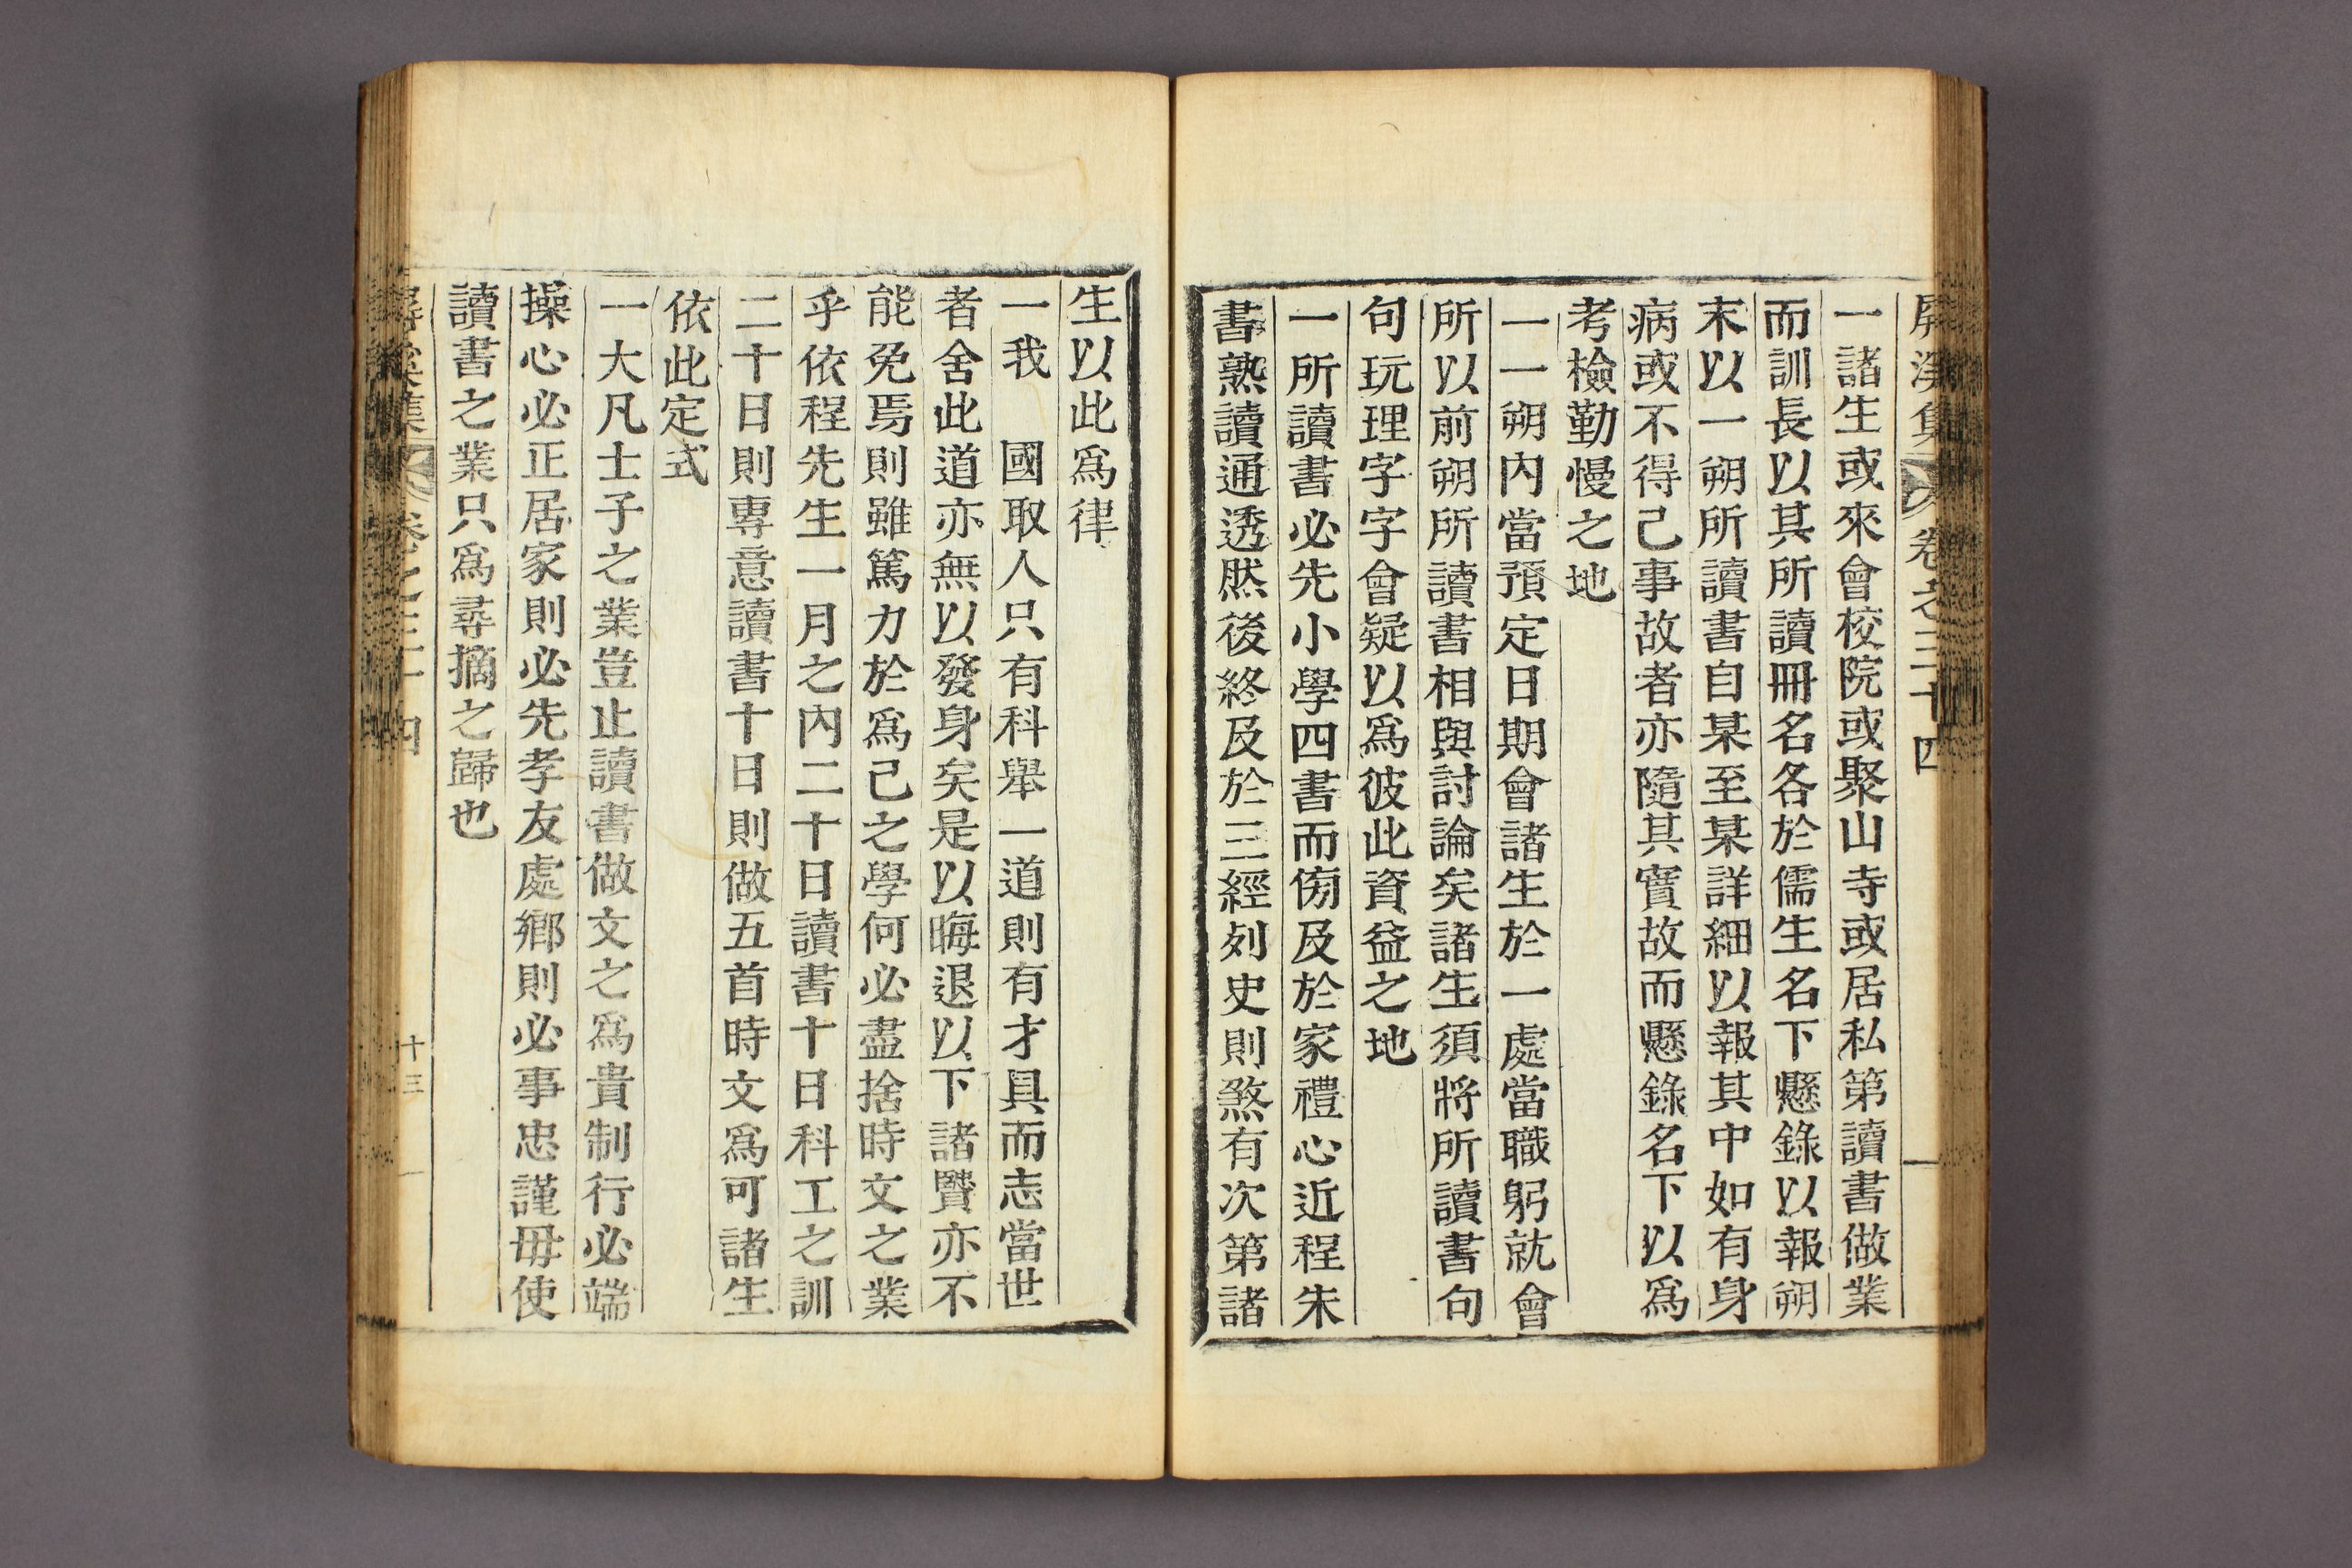 屛溪集 卷之三十四
一諸生或來會校院或聚山寺或居私第讀書做業
而訓長以其所讀冊名各於儒生名下懸錄以報朔
末以一朔所讀書自某至某詳細以報其中如有身
病或不得已事故者亦隨其實故而懸錄名下以爲
考檢勤慢之地
一一朔內當預定日期會諸生於一處當職躬就會
所以前朔所讀書相與討論矣諸生須將所讀書句
句玩理字字會疑以爲彼此資益之地
一所讀書必先小學四書而傍及於家禮心近程朱
書熟讀通透然後終及於三經列史則煞有次第諸
生以此爲律
一我 國取人只有科舉一道則有才具而志當世
者舍此道亦無以發身矣是以晦退以下諸賢亦不
能免焉則雖篤力於爲己之學何必盡捨時文之業
乎依程先生一月之內二十日讀書十日科工之訓
二十日則專意讀書十日則做五首時文爲可諸生
依此定式
一大凡士子之業豈止讀書做文之爲貴制行必端
操心必正居家則必先孝友處鄕則必事忠謹毋使
讀書之業只爲尋摘之歸也
集 卷之三十四 十三